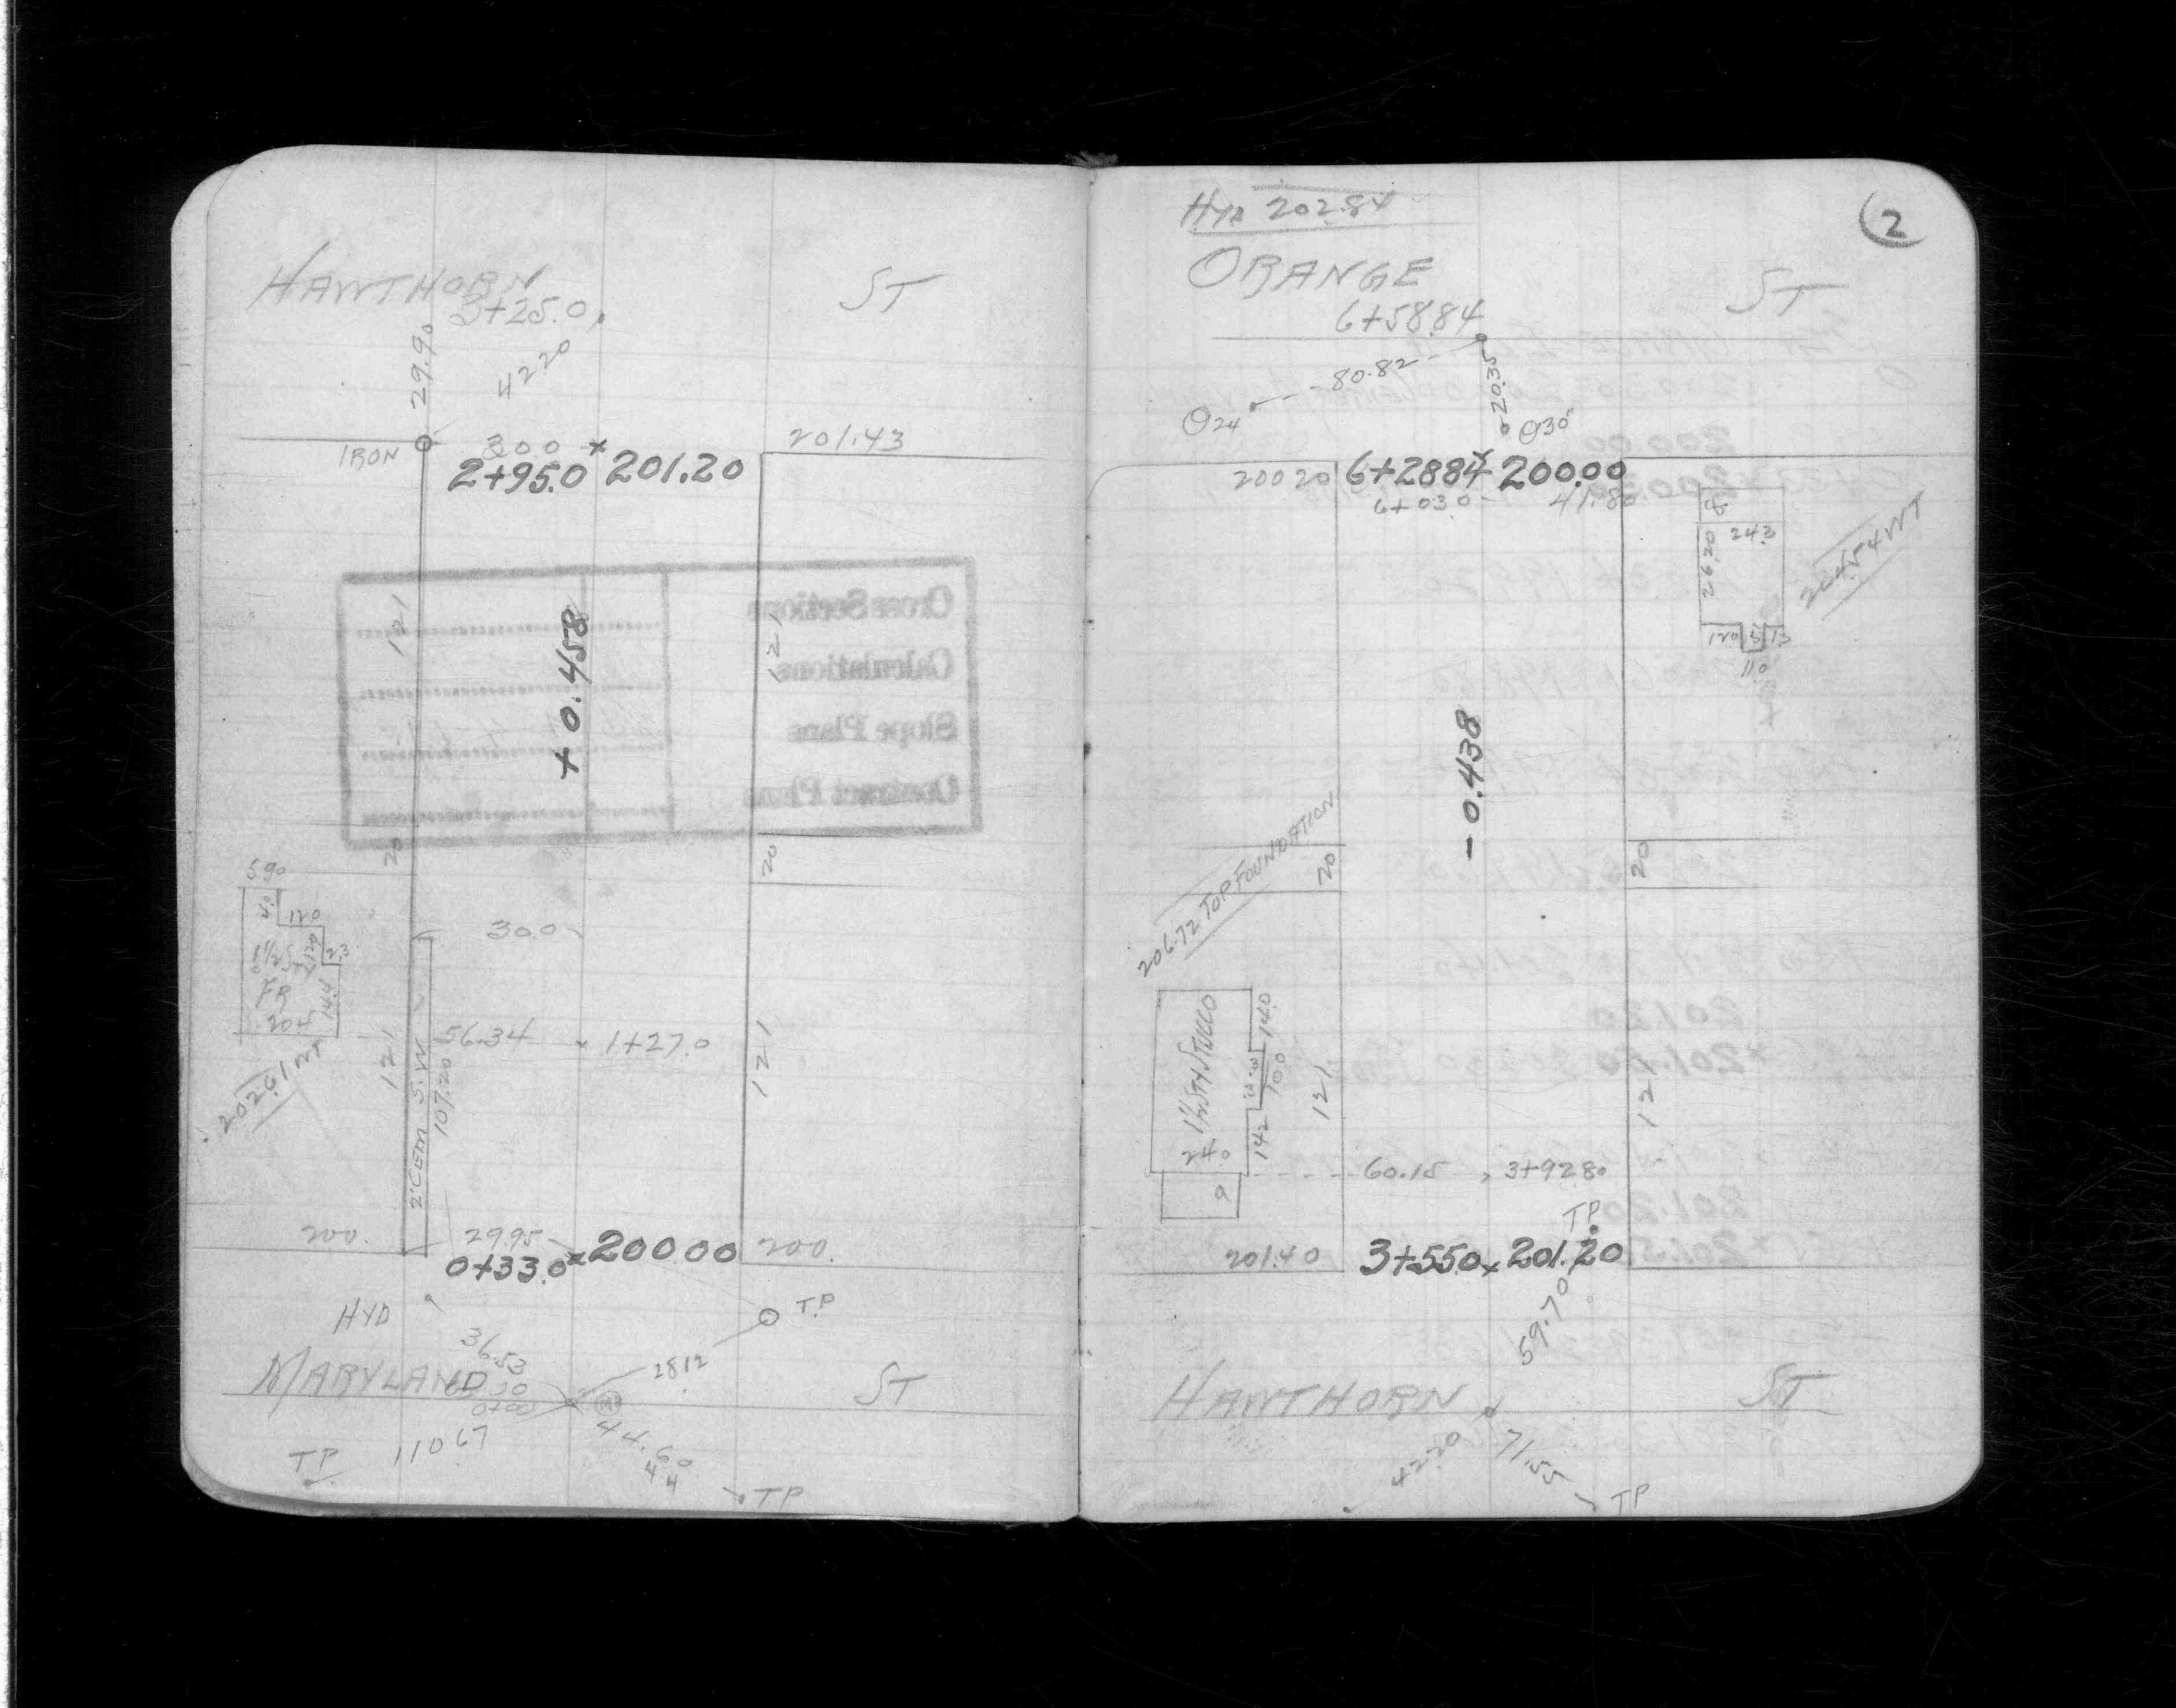 HAWTHORN ST
3+25.0
29.90
4220
IRON
30 0
201.43
2+95.0 × 201.20
121
+0.458
121
Cross Sections
Calculations
Slope Plans
Contract Plans
20
20
5.90
4.0
120
30.0
2.3
FR
14.4
204
121
56.34 × 1+27.0
121
2' CEM S.W
107.20
202.61 WT
200.
29.95
0+33.0 × 200 00
200.
HYD
T.P
36.53
2812
MARYLAND ST
0+00
44.60
TP 110 67
TP
HYD 202.84
2
ORANGE ST
6+58.84
80.82
20.35
200 20
6+28 84 × 200.00
6+03 0
41.80
26.20
243
204.54 WT
120
5
13
110
-0.438
206.72 TOP FOUNDATION
20
20
1½ STY STUCCO
14.0
10.0
142
24.0
121
121
9
60.15
3+92 80
TP
201.40
3+55 0 × 201.20
59.70
HAWTHORN ST
42.20
71.55
TP